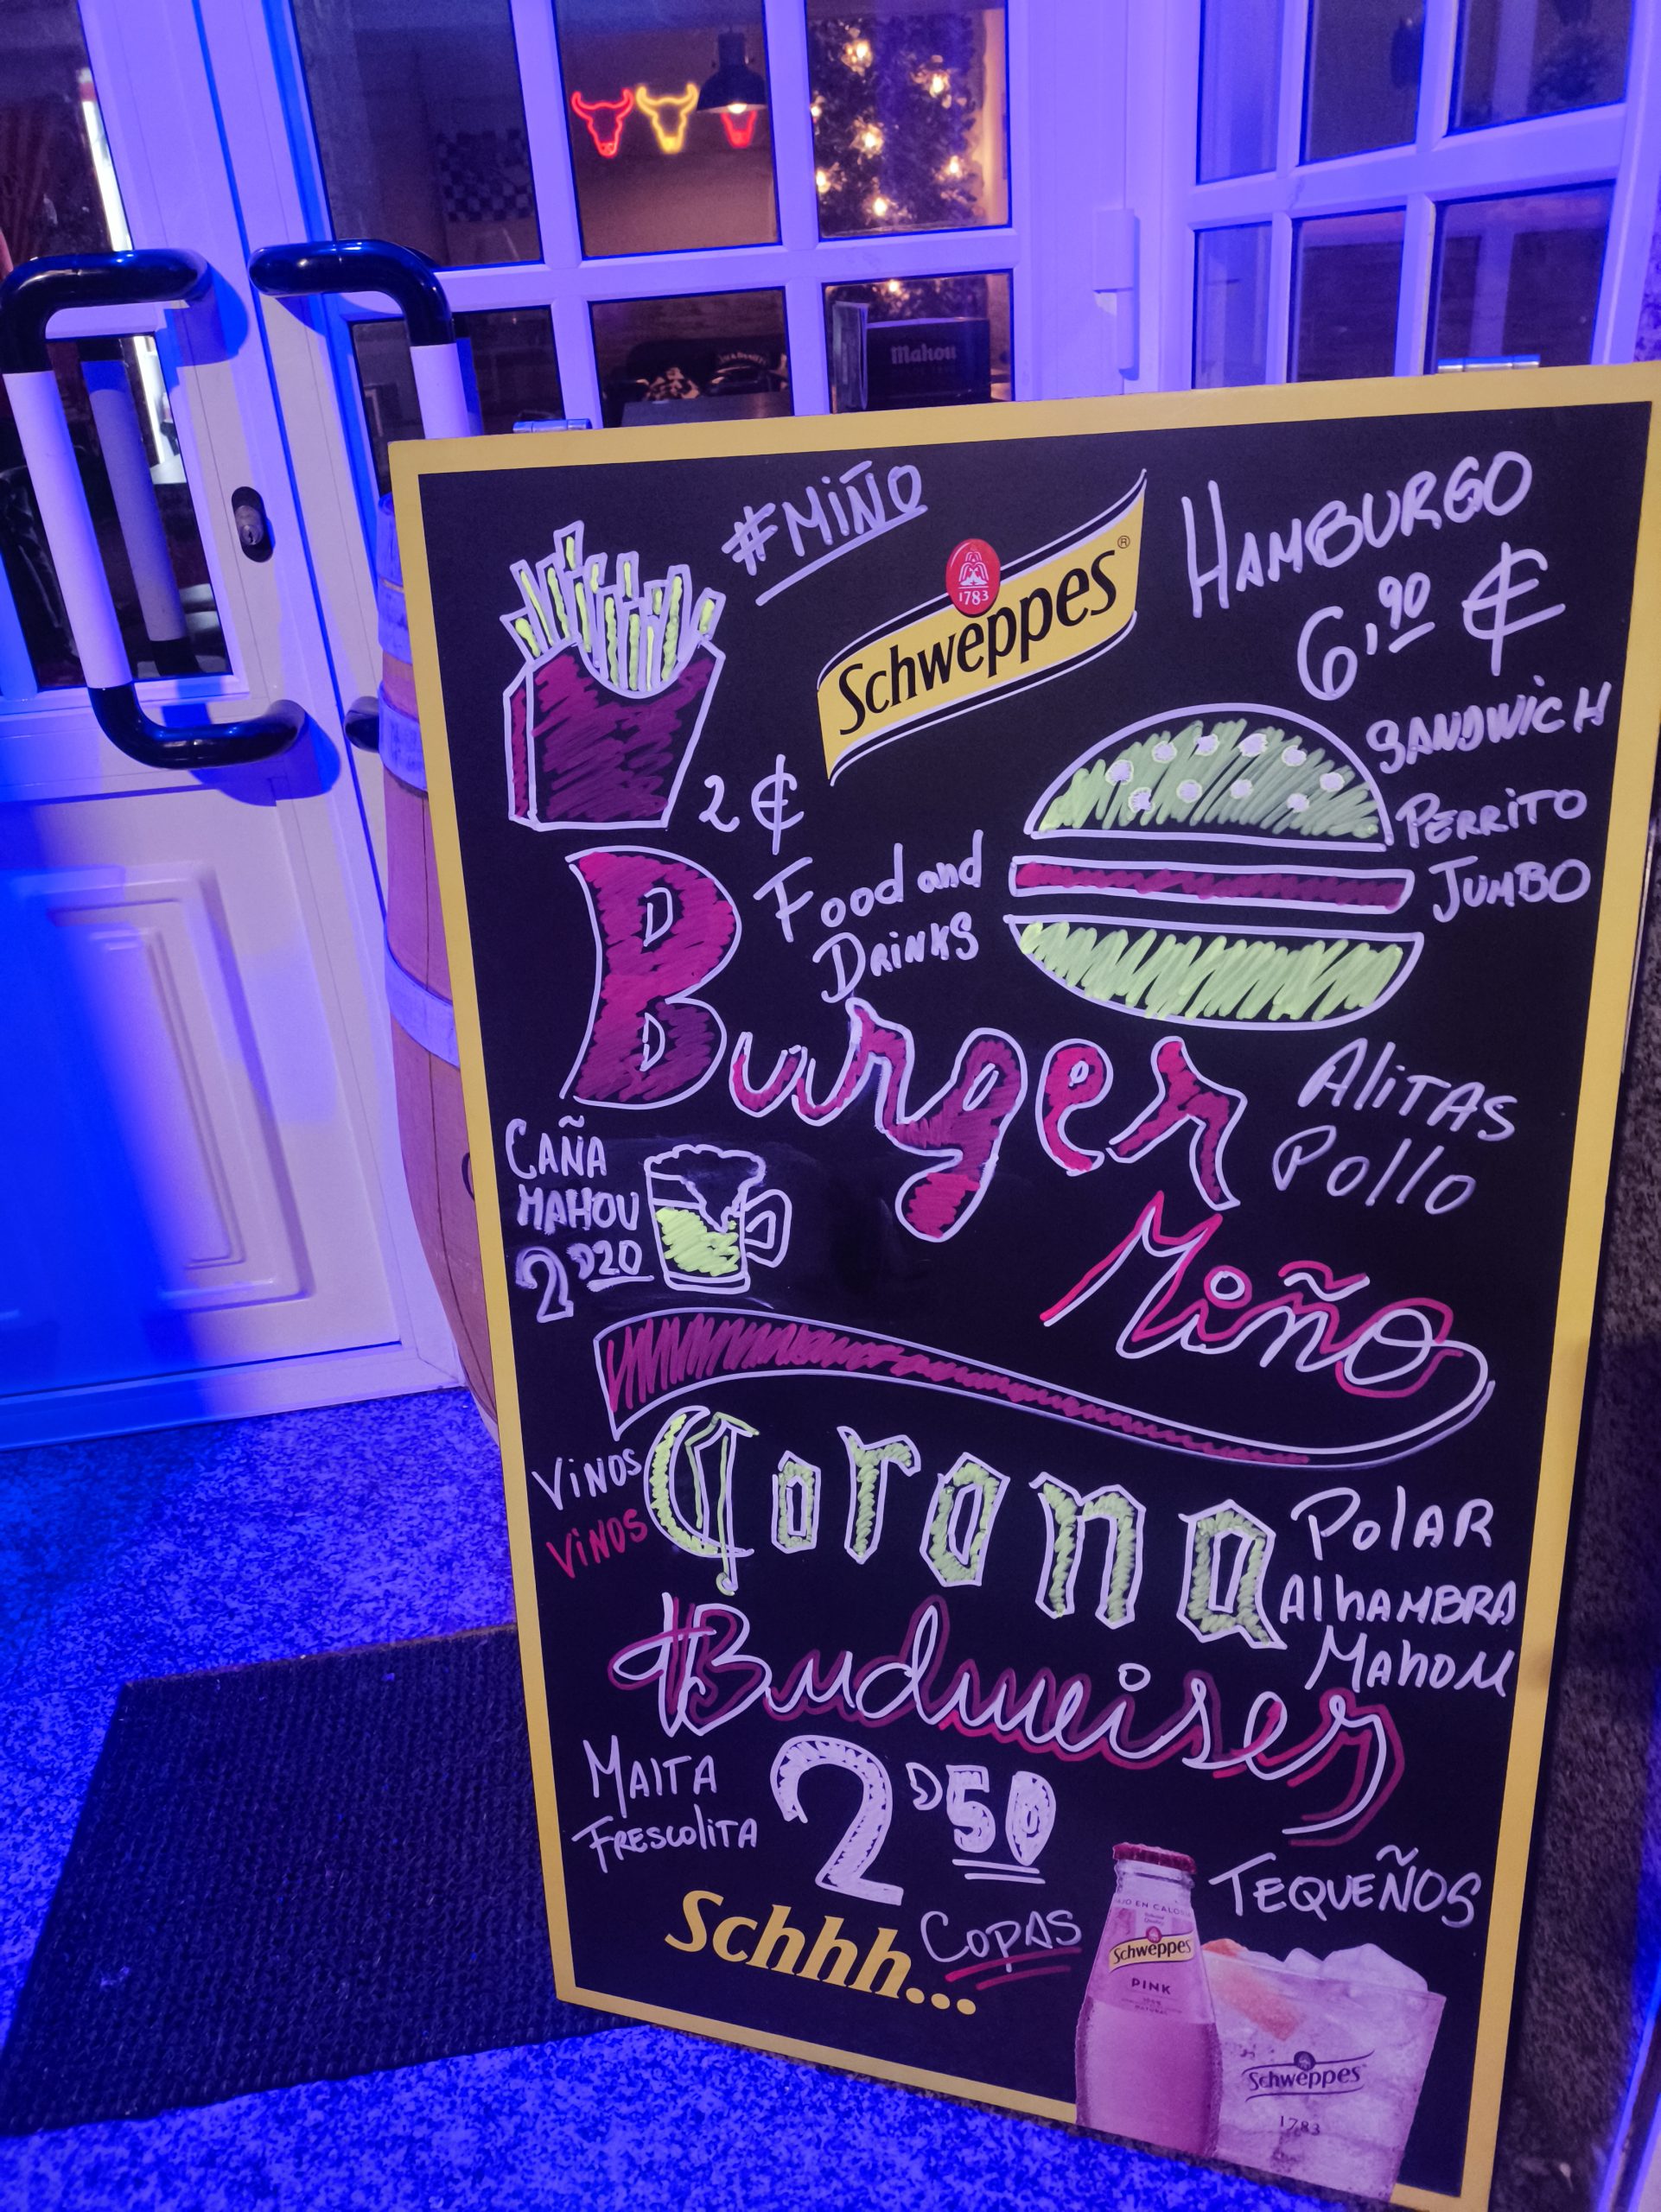 Mahou
#MIÑO
Schweppes®
1783
HAMBURGO
6,90 €
SANDWICH
PERRITO
JUMBO
2 €
Food and
DRINKS
Burger
Miño
ALITAS
Pollo
CAÑA
MAHOU
2'20
VINOS
VINOS
Corona
POLAR
AlhAMBRA
MAhou
#Budweiser
MAITA
FRESCOlITA
2'50
TEQUEÑOS
Schhh...
COPAS
Schweppes
PINK
Schweppes
1783